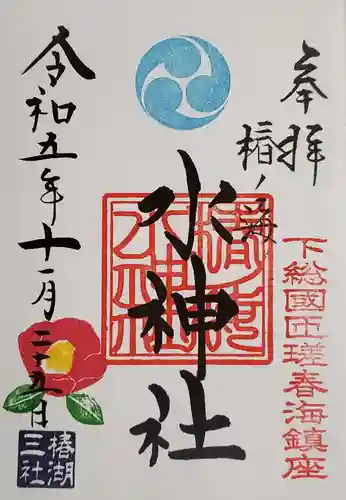 奉拝
下総國匝瑳春海鎮座
椿ノ海
水神社
令和五年十一月二十五日
椿湖
三社